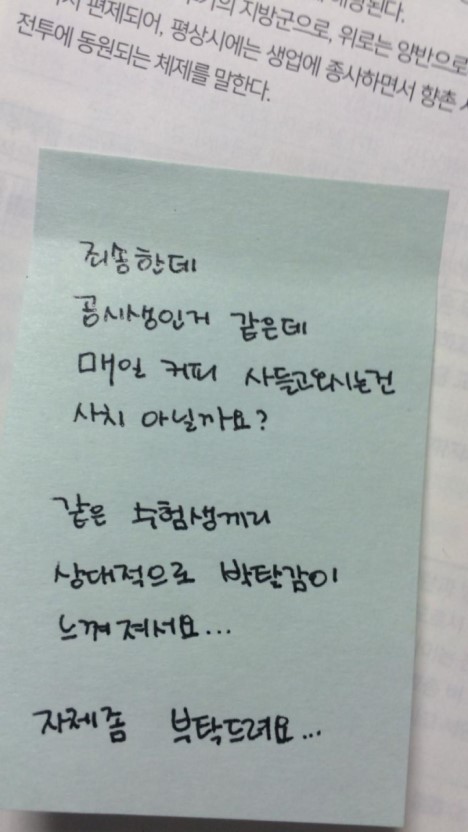 편제되어, 평상시에는 생업에 종사하면서 향촌
전투에 동원되는 체제를 말한다.
의 지방군으로, 위로는 양반으로
죄송한데
공시생인거 같은데
매일 커피 사들고오시는건
사치 아닐까요?
같은 수험생끼리
상대적으로 박탈감이
느껴져서요...
자제좀 부탁드려요...